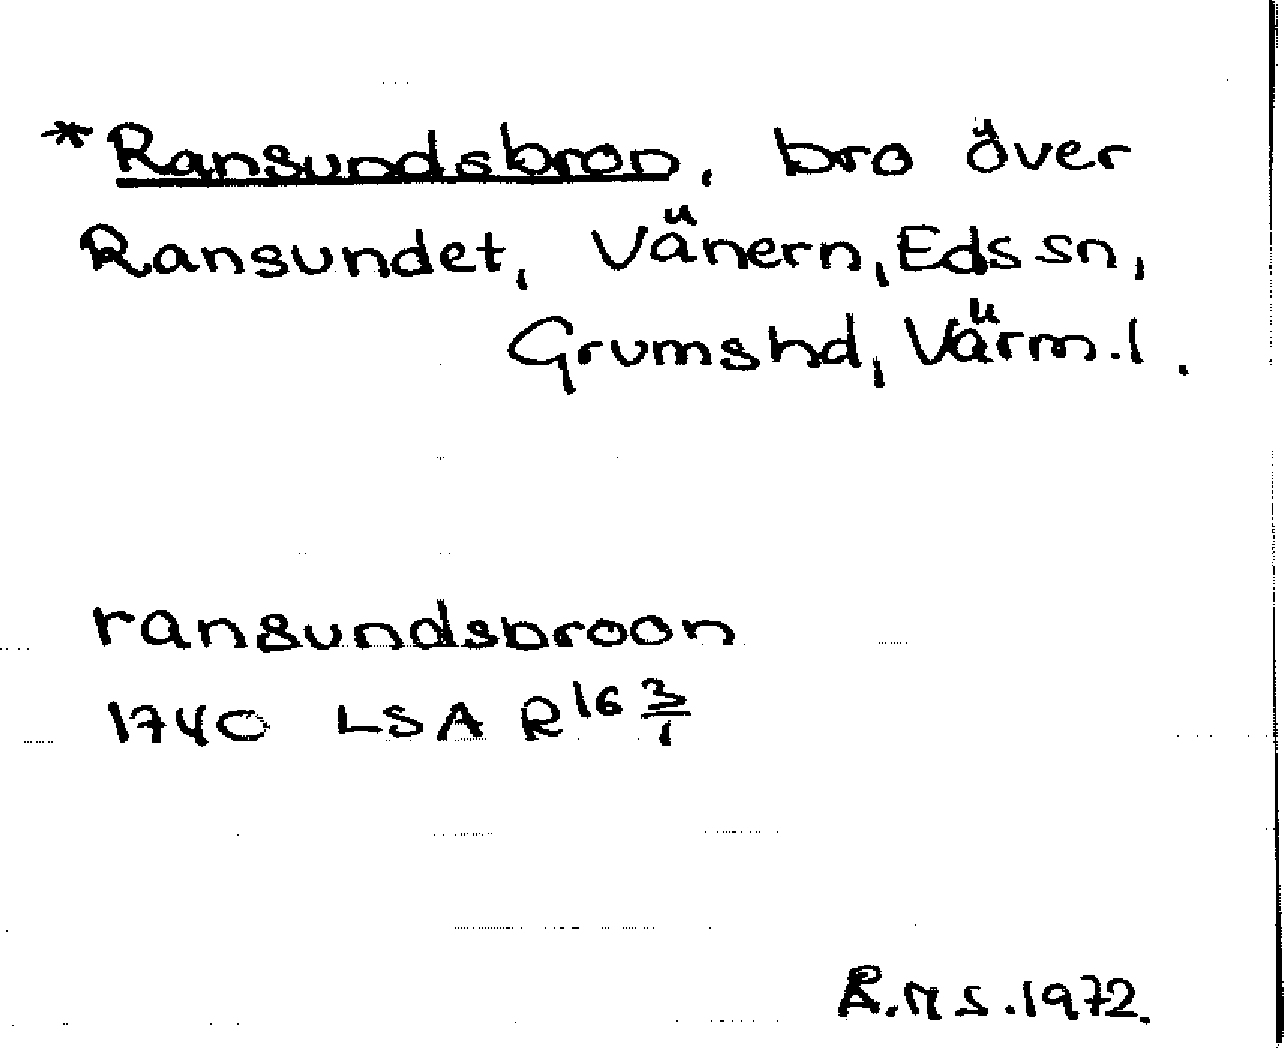 *Ransundsbron, bro över
Ransundet, Vänern, Eds sn,
Grumshd, Värm.l.
ransundsbroon
1740 LSA R16 3/1
R.M S.1972.